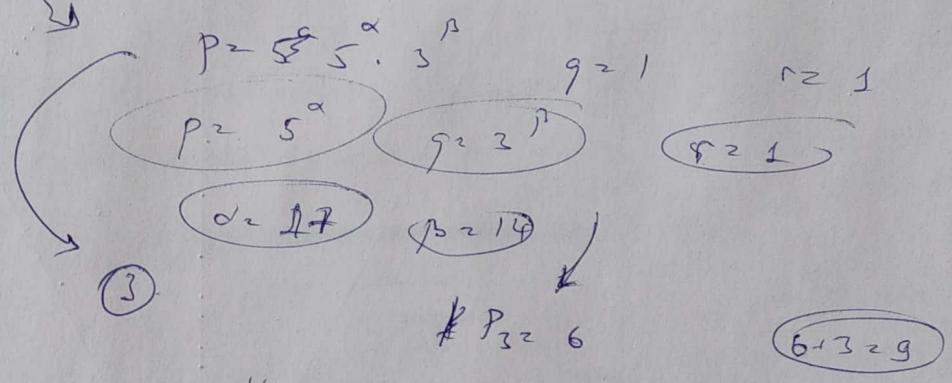 p = 5^α · 3^β q = 1 r = 1
p = 5^α q = 3^β r = 1
α = 17 β = 14
3
P₃ = 6
6+3=9